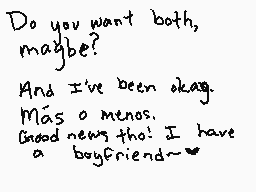 Do you want both,
maybe?
And I've been okay.
Más o menos.
Good news tho! I have
a boyfriend~♥